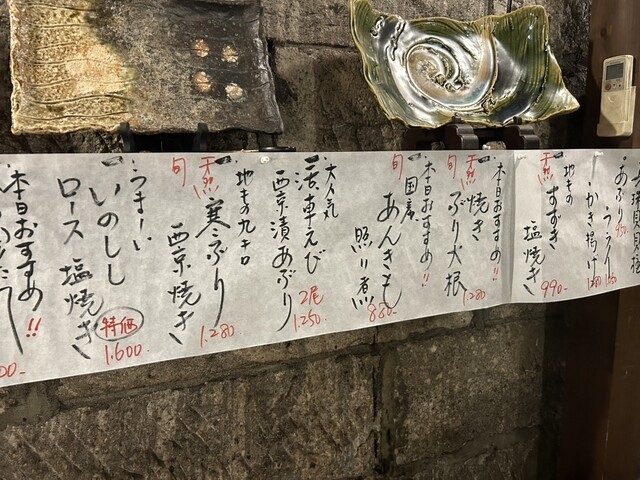 かき揚げ
1,280
天然
地もの
すずき
塩焼き
990-
本日おすすめ!!
旬
天然
焼き
ぶり大根
1,280
本日おすすめ!!
旬
国産
あんきも
照り煮
880-
大人気
活車えび
西京漬あぶり
2尾
1,250-
地もの九キロ
旬
天然
寒ぶり
西京焼き
1,280-
うまーい
いのしし
ロース 塩焼き
特価
1,600-
本日おすすめ!!
00-